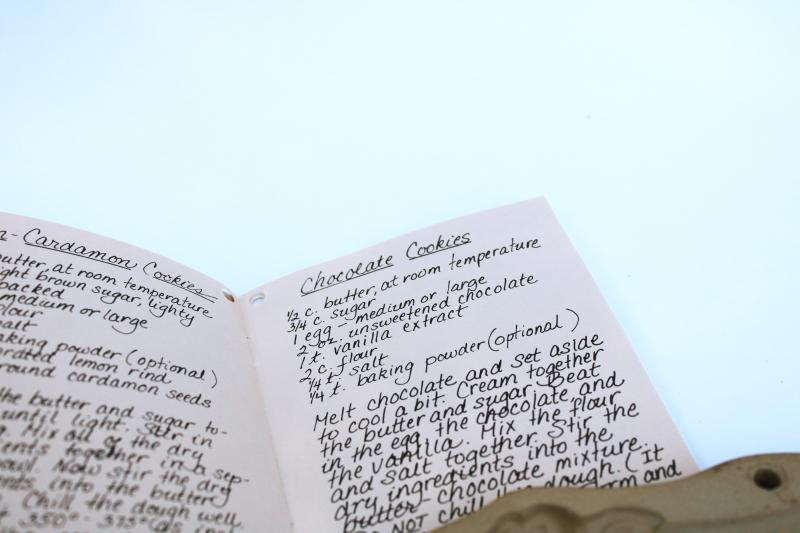 - Cardamon Cookies
butter, at room temperature
ght brown sugar, lightly
packed
medium or large
flour
salt
aking powder (optional)
rated lemon rind
round cardamon seeds
the butter and sugar to-
until light. Stir in
. Mix all of the dry
ents together in a sep-
owl. Now stir the dry
ents into the buttery
. Chill the dough well.
350° - 375°
Chocolate Cookies
1/2 c. butter, at room temperature
3/4 c. sugar
1 egg - medium or large
2 oz. unsweetened chocolate
1 t. vanilla extract
2 c. flour
1/4 t. salt
1/4 t. baking powder (optional)
Melt chocolate and set aside
to cool a bit. Cream together
the butter and sugar. Beat
in the egg, the chocolate and
the vanilla. Mix the flour
and salt together. Stir the
dry ingredients into the
butter-chocolate mixture.
Do NOT chill this dough. (It
rm and